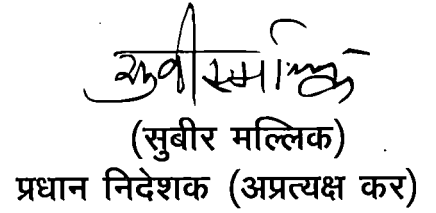 सुबीर मल्लिक
(सुबीर मल्लिक)
प्रधान निदेशक (अप्रत्यक्ष कर)